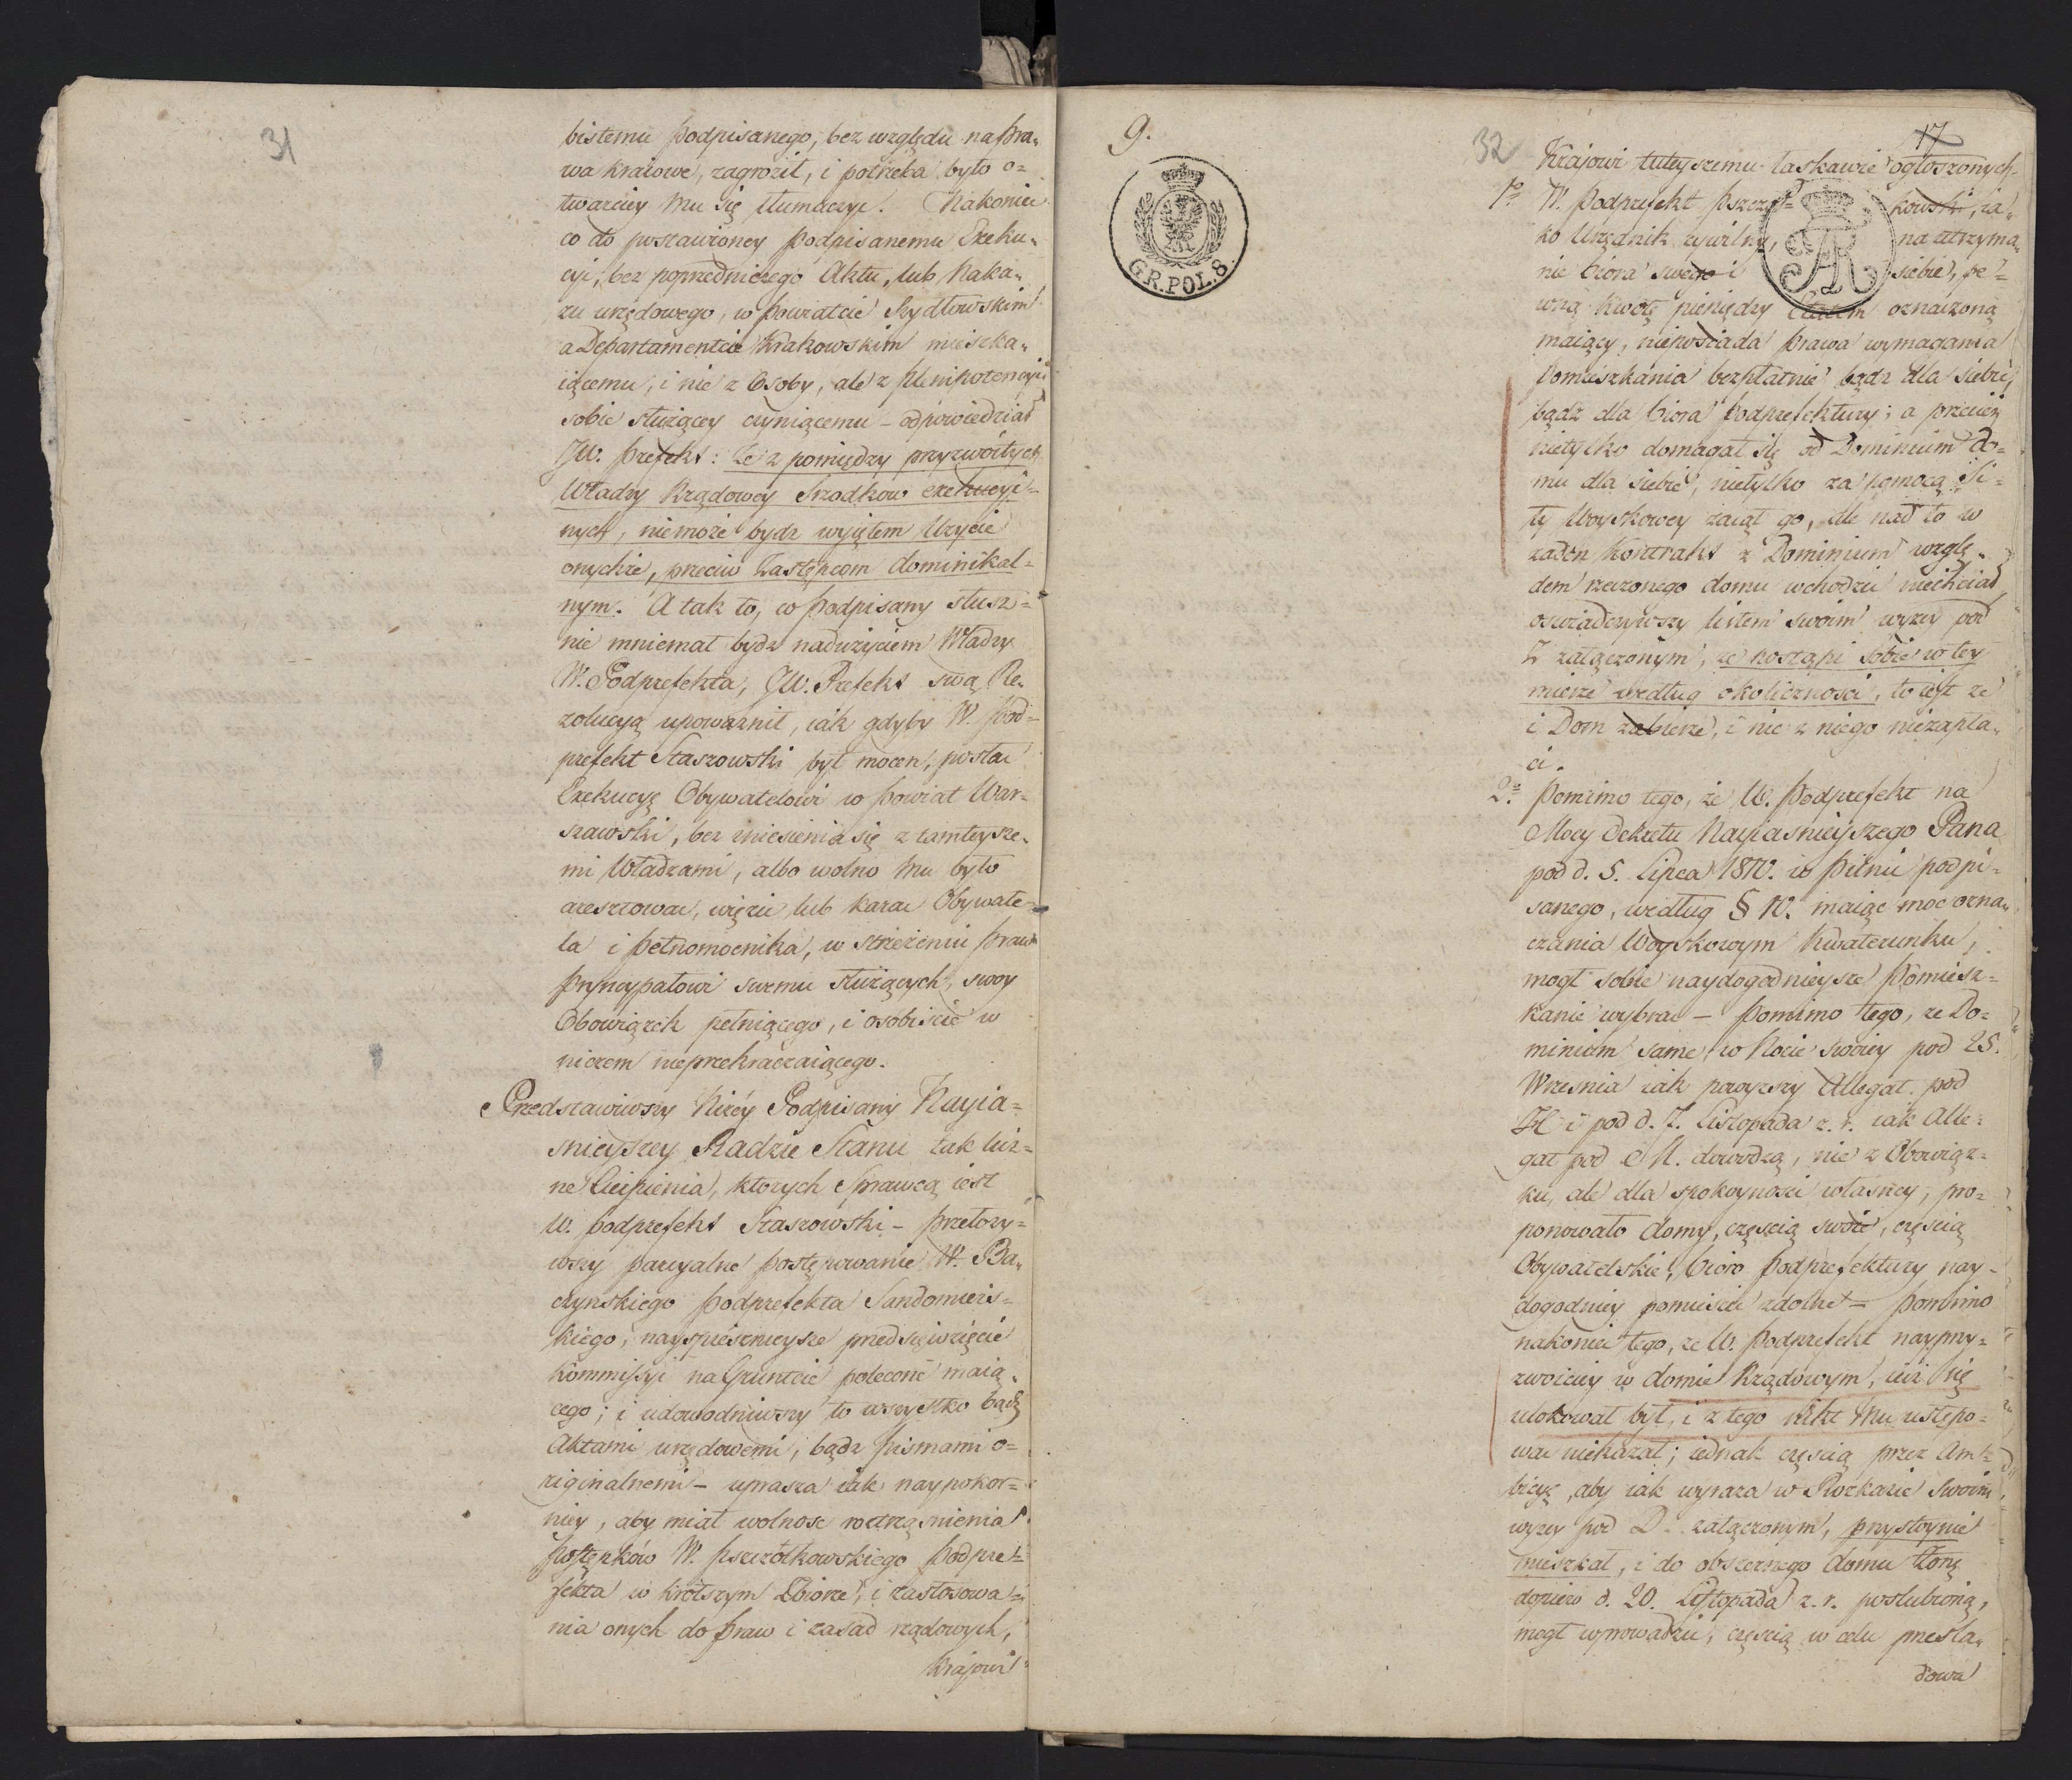 31
bistemu Podpisanego, bez względu na Pra„
wa kraiowe, zagroził, i potrzeba było o=
twarciey Mu się tłumaczyć. Nakoniec
co do postawioney Podpisanemu Exeku„
cyi, bez poprzedniczego Aktu, lub Naka„
zu urzędowego, w Powiatcie Szydłowskim
a Departamentcie Krakowskim mieszka„
iącemu, i nie z Osoby, ale z Plenipotencyi
sobie służącey czyniącemu – odpowiedział
JW. Prefekt: Że z pomiędzy przyzwoitych
Władzy Rządowey Srzodkow exekucyi=
nych, niemoże bydz wyiętem Użycie
onychże, przeciw Zastępcom dominikal=
nym. A tak to, co Podpisany słusz=
nie mniemał bydz nadużyciem Władzy
W. Podprefekta, JW. Prefekt swą Re„
zolucyą upoważnił, iak gdyby W. Pod=
prefekt Staszowski był mocen, posłać
Exekucyę Obywatelowi w Powiat War=
szawski, bez zniesienia się z tamteysze„
mi Władzami, albo wolno Mu było
aresztować, więzić lub karać Obywate=
la i Pełnomocnika, w strzeżeniu Praw
Pryncypałowi swemu służących, swoy
Obowiązek pełniącego, i osobiscie w
niczem nieprzekraczaiącego.
Przedstawiwszy Niżey Podpisany Nayia=
snieyszey Radzie Stanu tak licz=
ne Cierpienia, ktorych Sprawcą iest
W. Podprefekt Staszowski – przełoży=
wszy parcyalne Postępowanie W. Ba„
czynskiego Podprefekta Sandomiers=
kiego, nayspiesznieysze przedsięwzięcie
Kommissyi na Gruntcie polecone maią„
cego; i udowodniwszy to wszystko bądz
Aktami urzędowemi, bądz pismami o=
riginalnemi – uprasza iak naypokor=
niey, aby miał wolnosc roztrząsnienia
Postępków W. Pszczółkowskiego Podpre=
fekta w krotszym Zbiorze, i zastosowa=
nia onych do Praw i zasad rządowych,
Krajowi
9.
GR.POL.8.
32
17
Krajowi tuteyszemu łaskawie ogłoszonych.
1o W. Podprefekt Pszczoł= kowski, ia„
ko Urzędnik cywilny, na utrzyma„
nie biora swego i siebie, pe=
wną kwotę pieniędzy Etatem oznaczoną
maiący, nieposiada Prawa wymagania
Pomieszkania bezpłatnie bądz dla siebie,
bądz dla biora Podprefektury; a przecież
nietylko domagał się od Dominium Do=
mu dla siebie, nietylko za pomocą Si=
ły Woyskowey zaiął go, ale nad to w
żaden Kontrakt z Dominium wzglę„
dem rzeczonego domu wchodzić niechciał,
oswiadczywszy listem swoim wyzey pod
Z załączonym, że postąpi sobie w tey
mierze według okolicznosci, to iest że
i Dom zabierze, i nic z niego niezapła„
ci.
2o Pomimo tego, że W. Podprefekt na
Mocy Dekretu Nayiasnieyszego Pana
pod d. 5. Lipca 1810. w Pilnie podpi=
sanego, według § 10. maiąc moc ozna„
czania Woyskowym Kwaterunku,
mogł sobie naydogodnieysze Pomiesz=
kanie wybrać – Pomimo tego, że Do=
minium same, w Nocie swoiey pod 25.
Wrzesnia iak powyzszy Allegat pod
H i pod d. 7. Listopada z. r. iak Alle=
gat pod M. dowodzą, nie z Obowiąz=
ku, ale dla spokoynosci własney, pro=
ponowało domy, częscią swoie, częscią
Obywatelskie, bioro Podprefektury nay=
dogodniey pomiescić zdolne – Pomimo
nakoniec tego, że W. Podprefekt nayprzy=
zwoiciey w domie Rządowym, iuż się
ulokował był, i z tego nikt Mu ustępo=
wać niekazał; iednak częscią przez Am=
bicyę, aby iak wyraża w Rozkazie swoim
wyzey pod D. załączonym, przystoynie
mieszkał, i do obszernego domu Żonę
dopiero d. 20. Listopada z. r. poslubioną,
mogł wprowadzić, częscią w celu przesla„
dowa